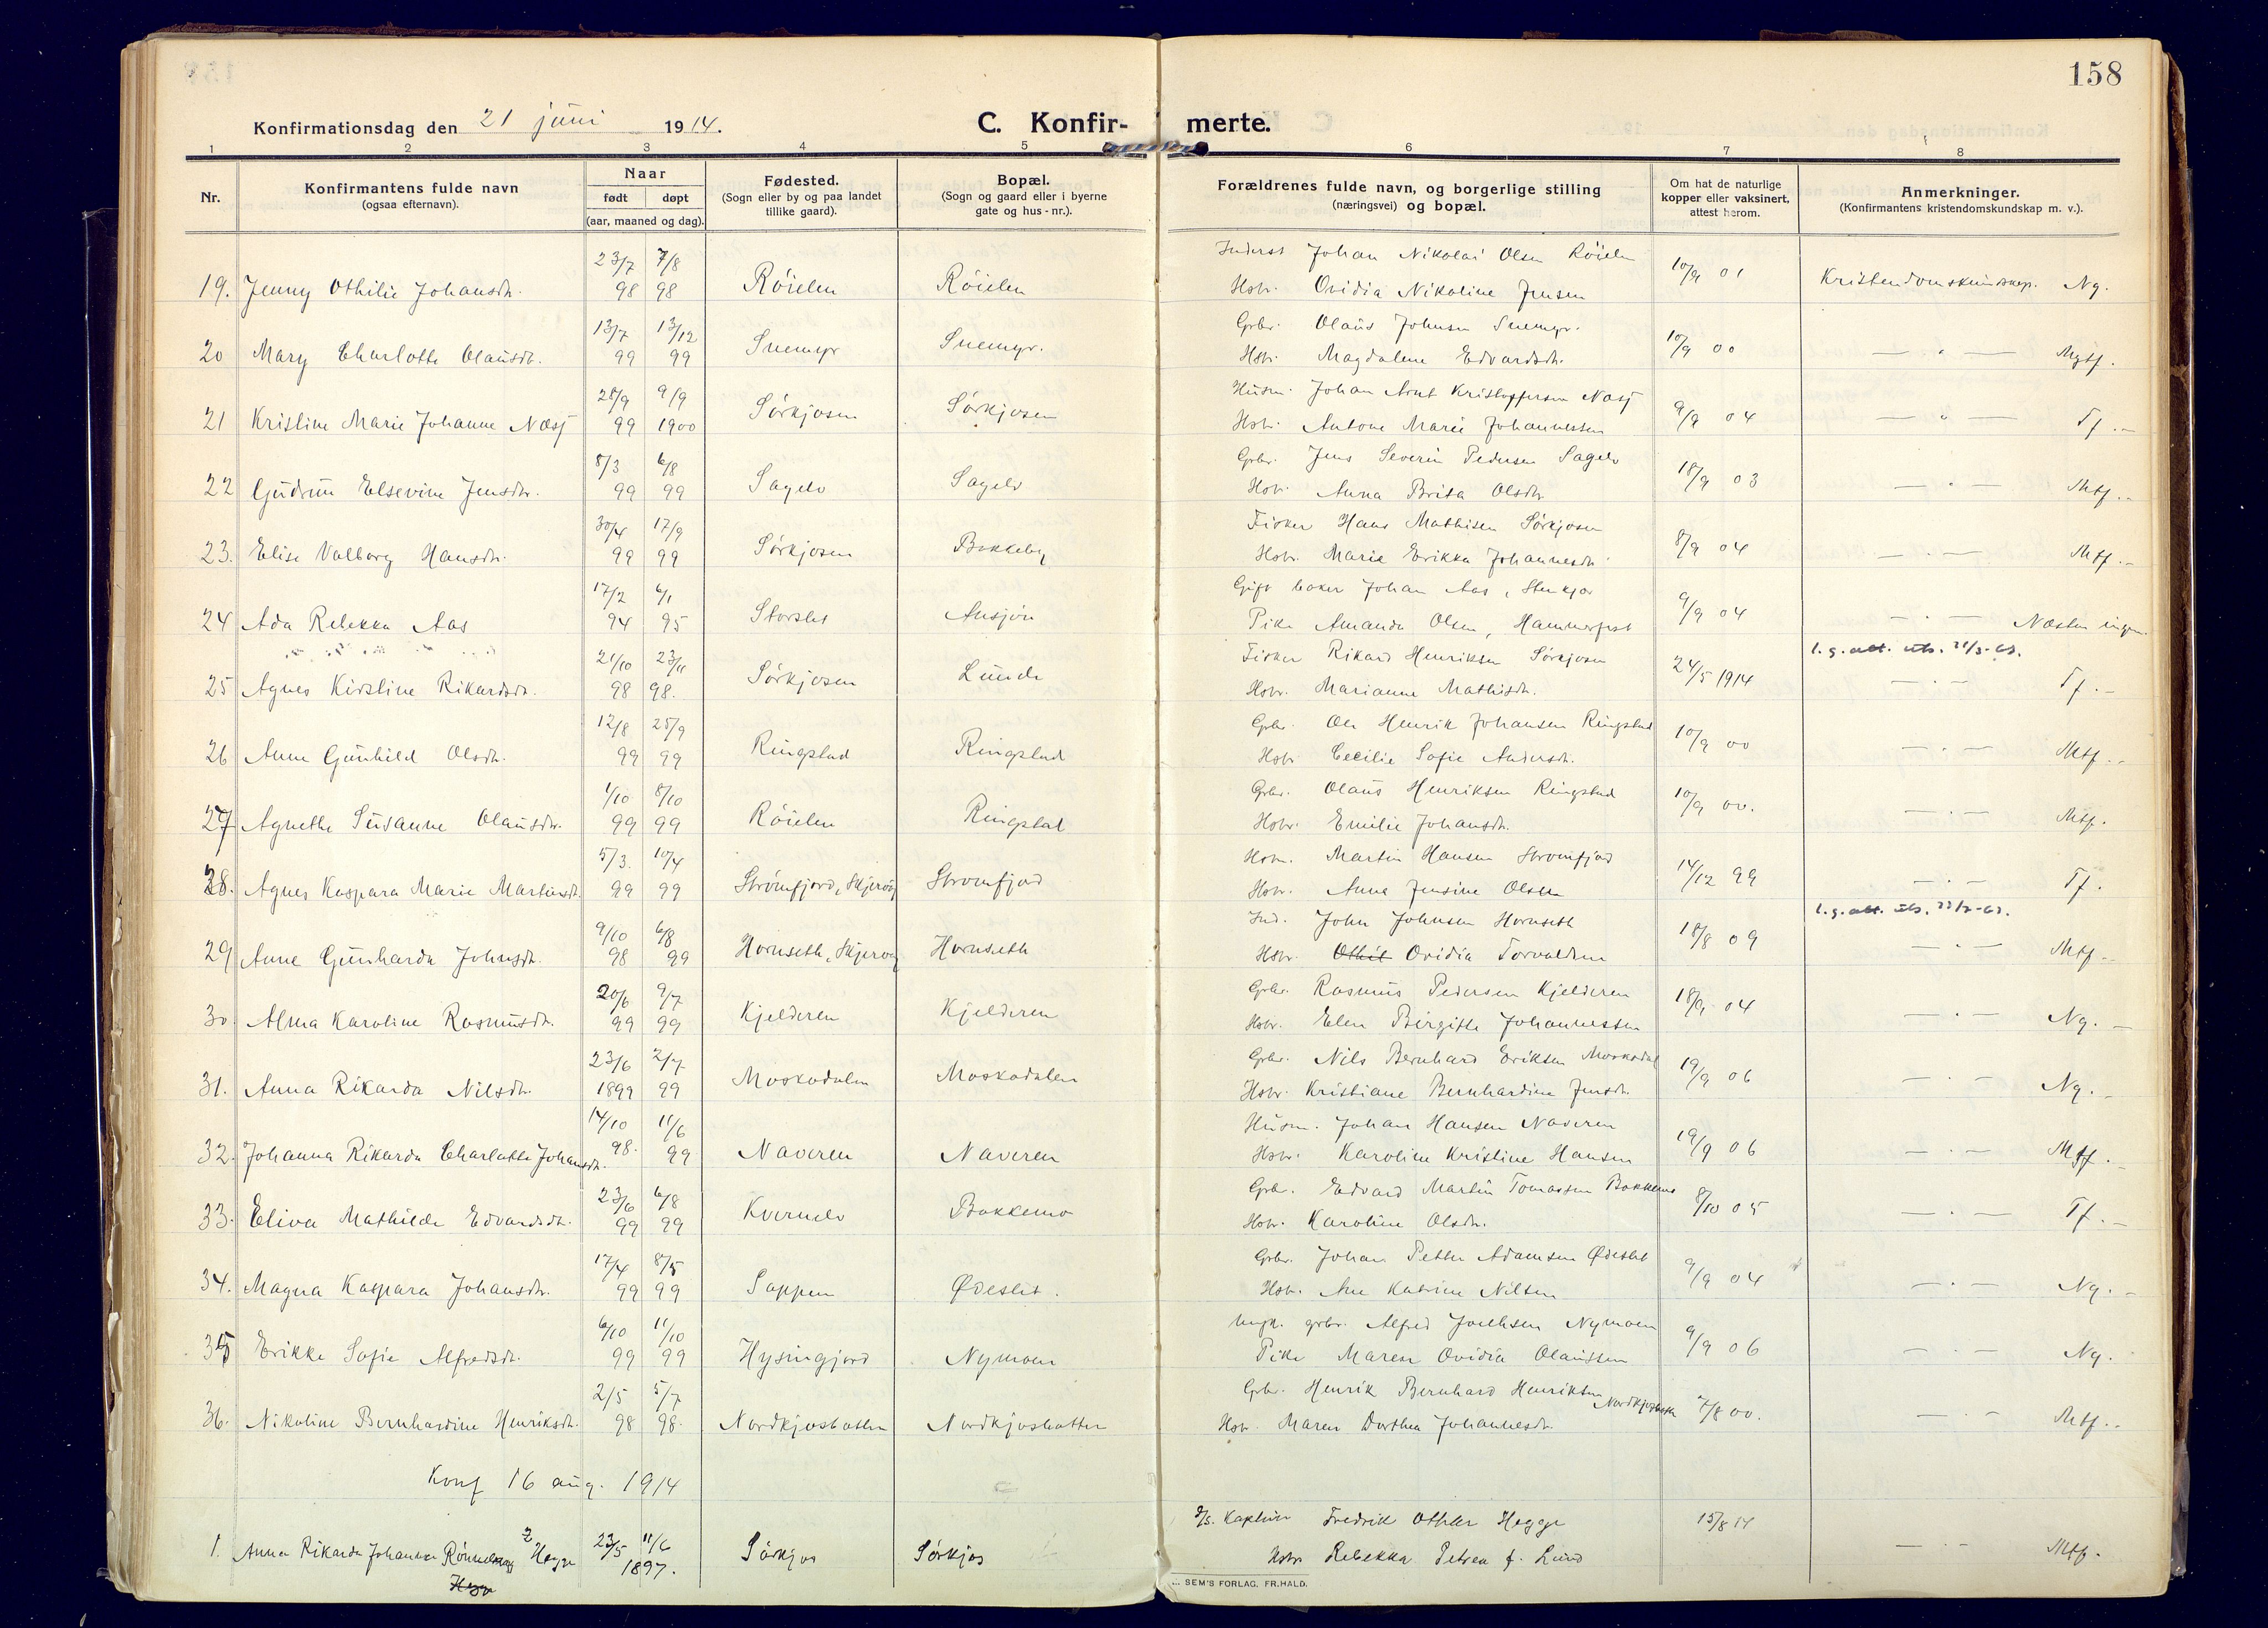 158
Konfirmationsdag den 21 juni 1914.
C. Konfir- merte.
1 2 3 4 5 6 7 8
Nr.
Konfirmantens fulde navn
(ogsaa efternavn).
Naar
født døpt
(aar, maaned og dag).
Fødested.
(Sogn eller by og paa landet
tillike gaard).
Bopæl.
(Sogn og gaard eller i byerne
gate og hus-nr.).
Forældrenes fulde navn, og borgerlige stilling
(næringsvei) og bopæl.
Om hat de naturlige
kopper eller vaksinert,
attest herom.
Anmerkninger.
(Konfirmantens kristendomskundskap m. v.).
23/7 7/8 Inderst Johan Nikolai Olsen Röielen
19. Jenny Othilie Johansdtr. 98 98 Röielen Röielen Hstr. Ovidia Nikoline Jensen 10/9 01 Kristendomskundskap. Ng.
13/7 13/12 Grbr. Olaus Johnsen Snemyr.
20 Mary Charlotte Olausdtr. 99 99 Snemyr Snemyr. Hstr. Magdalene Edvardsdtr. 10/9 00 — " — Mgtf.
28/9 9/9 Husm. Johan Arnt Kristoffersen Næsj
21 Kristine Marie Johanne Næsj 99 1900 Sörkjosen Sörkjosen Hstr. Antone Marie Johannessen 9/9 04 — " — Tf.
8/3 6/8 Grbr. Jens Severin Pedersen Sagelv
22 Gudrun Elsevine Jensdtr. 99 99 Sagelv Sagelv Hstr. Anna Brita Olsdtr. 18/9 03 — " — Mtf.
30/4 17/9 Fisker Hans Mathisen Sörkjosen
23. Elise Valborg Hansdtr. 99 99 Sörkjosen Bakkeby Hstr. Marie Erikka Johannesdtr. 8/9 04 — " — Mtf.
17/2 6/1 Gift baker Johan Aas, Stenkjær
24 Ada Rebekka Aas 94 95 Storslet Ansjön Pike Amanda Olsen, Hammerfest 9/9 04 — " — Næsten ingen.
21/10 23/11 Fisker Rikard Henriksen Sörkjosen l.g. att. utst. 21/3-63.
25 Agnes Kirstine Rikardsdtr. 98 98. Sörkjosen Lunde Hstr. Marianne Mathisdtr. 24/5 1914 — " — Tf.
12/8 25/9 Grbr. Ole Henrik Johansen Ringstad
26 Anne Gunhild Olsdtr. 99 99 Ringstad Ringstad Hstr. Cecilie Sofie Andersdtr. 10/9 00 — " — Mtf.
1/10 8/10 Grbr. Olaus Henriksen Ringstad
27 Agnethe Susanne Olausdtr. 99 99 Röielen Ringstad Hstr. Emilie Johansdtr. 10/9 00. — " — Mtf.
5/3. 10/4 Hsm. Martin Hansen Strömfjord
28. Agnes Kaspara Marie Martinsdtr. 99 99 Strömfjord, Skjervöy Strömfjord Hstr. Anna Jensine Olsen 14/12 99 — " — Tf.
9/10 6/8 Ind. John Johnsen Hornseth l.g. att. utst.
29 Anne Gunharda Johnsdtr. 98 99 Hornseth, Skjervöy Hornseth Hstr. Othil Ovidia Torvaldsen 18/8 09 — " — Mtf.
20/6 9/7 Grbr. Rasmus Pedersen Kjelderen
30 Alma Karoline Rasmusdtr. 99 99 Kjelderen Kjelderen Hstr. Elen Birgitte Johannessen 18/9 04 — " — Ng.
23/6 2/7 Grbr. Nils Bernhard Eriksen Moskodal
31. Anna Rikarda Nilsdtr. 1899 99 Moskodalen Moskodalen Hstr. Kristiane Bernhardine Jensdtr. 19/9 06 — " — Ng.
14/10 11/6 Husm. Johan Hansen Naveren
32. Johanna Rikarda Charlotte Johansdtr. 98. 99 Naveren Naveren Hstr. Karoline Kristine Hansen 19/9 06 — " — Mtf.
23/6 6/8 Grbr. Edvard Martin Tomassen Bakkemo
33. Eliva Mathilde Edvardsdtr. 99 99 Kvernelv Bakkemo Hstr. Karoline Olsdtr. 8/10 05 — " — Tf.
17/4 8/5 Grbr. Johan Petter Adamsen Ödeslet
34. Magna Kaspara Johansdtr. 99 99 Sappen Ödeslet. Hstr. Ane Katrine Nilsen 9/9 04 — " — Ng.
6/10 11/10 Ungk. grbr. Alfred Joelsen Nymoen
35 Erikke Sofie Alfredsdtr. 99 99 Hysingjord Nymoen Pike Maren Ovidia Olaussen 9/9 06 — " — Ng.
2/5 5/7 Grbr. Henrik Bernhard Henriksen Nordkjosbotn
36. Nikoline Bernhardine Henriksdtr. 98 98. Nordkjosbotten Nordkjosbotten Hstr. Maren Dorthea Johannesdtr. 7/8 00. — " — Mtf.
Konf 16 aug. 1914
D/S. Kaptein Fredrik Hegge 15/8 14
1. Anna Rikarda Johanna Hegge 23/5 11/6 1897. Sörkjos Sörkjos Hstr. Rebekka Petrea f. Lund — " — Mtf.
Hegge
SEM'S FORLAG. FR.HALD.